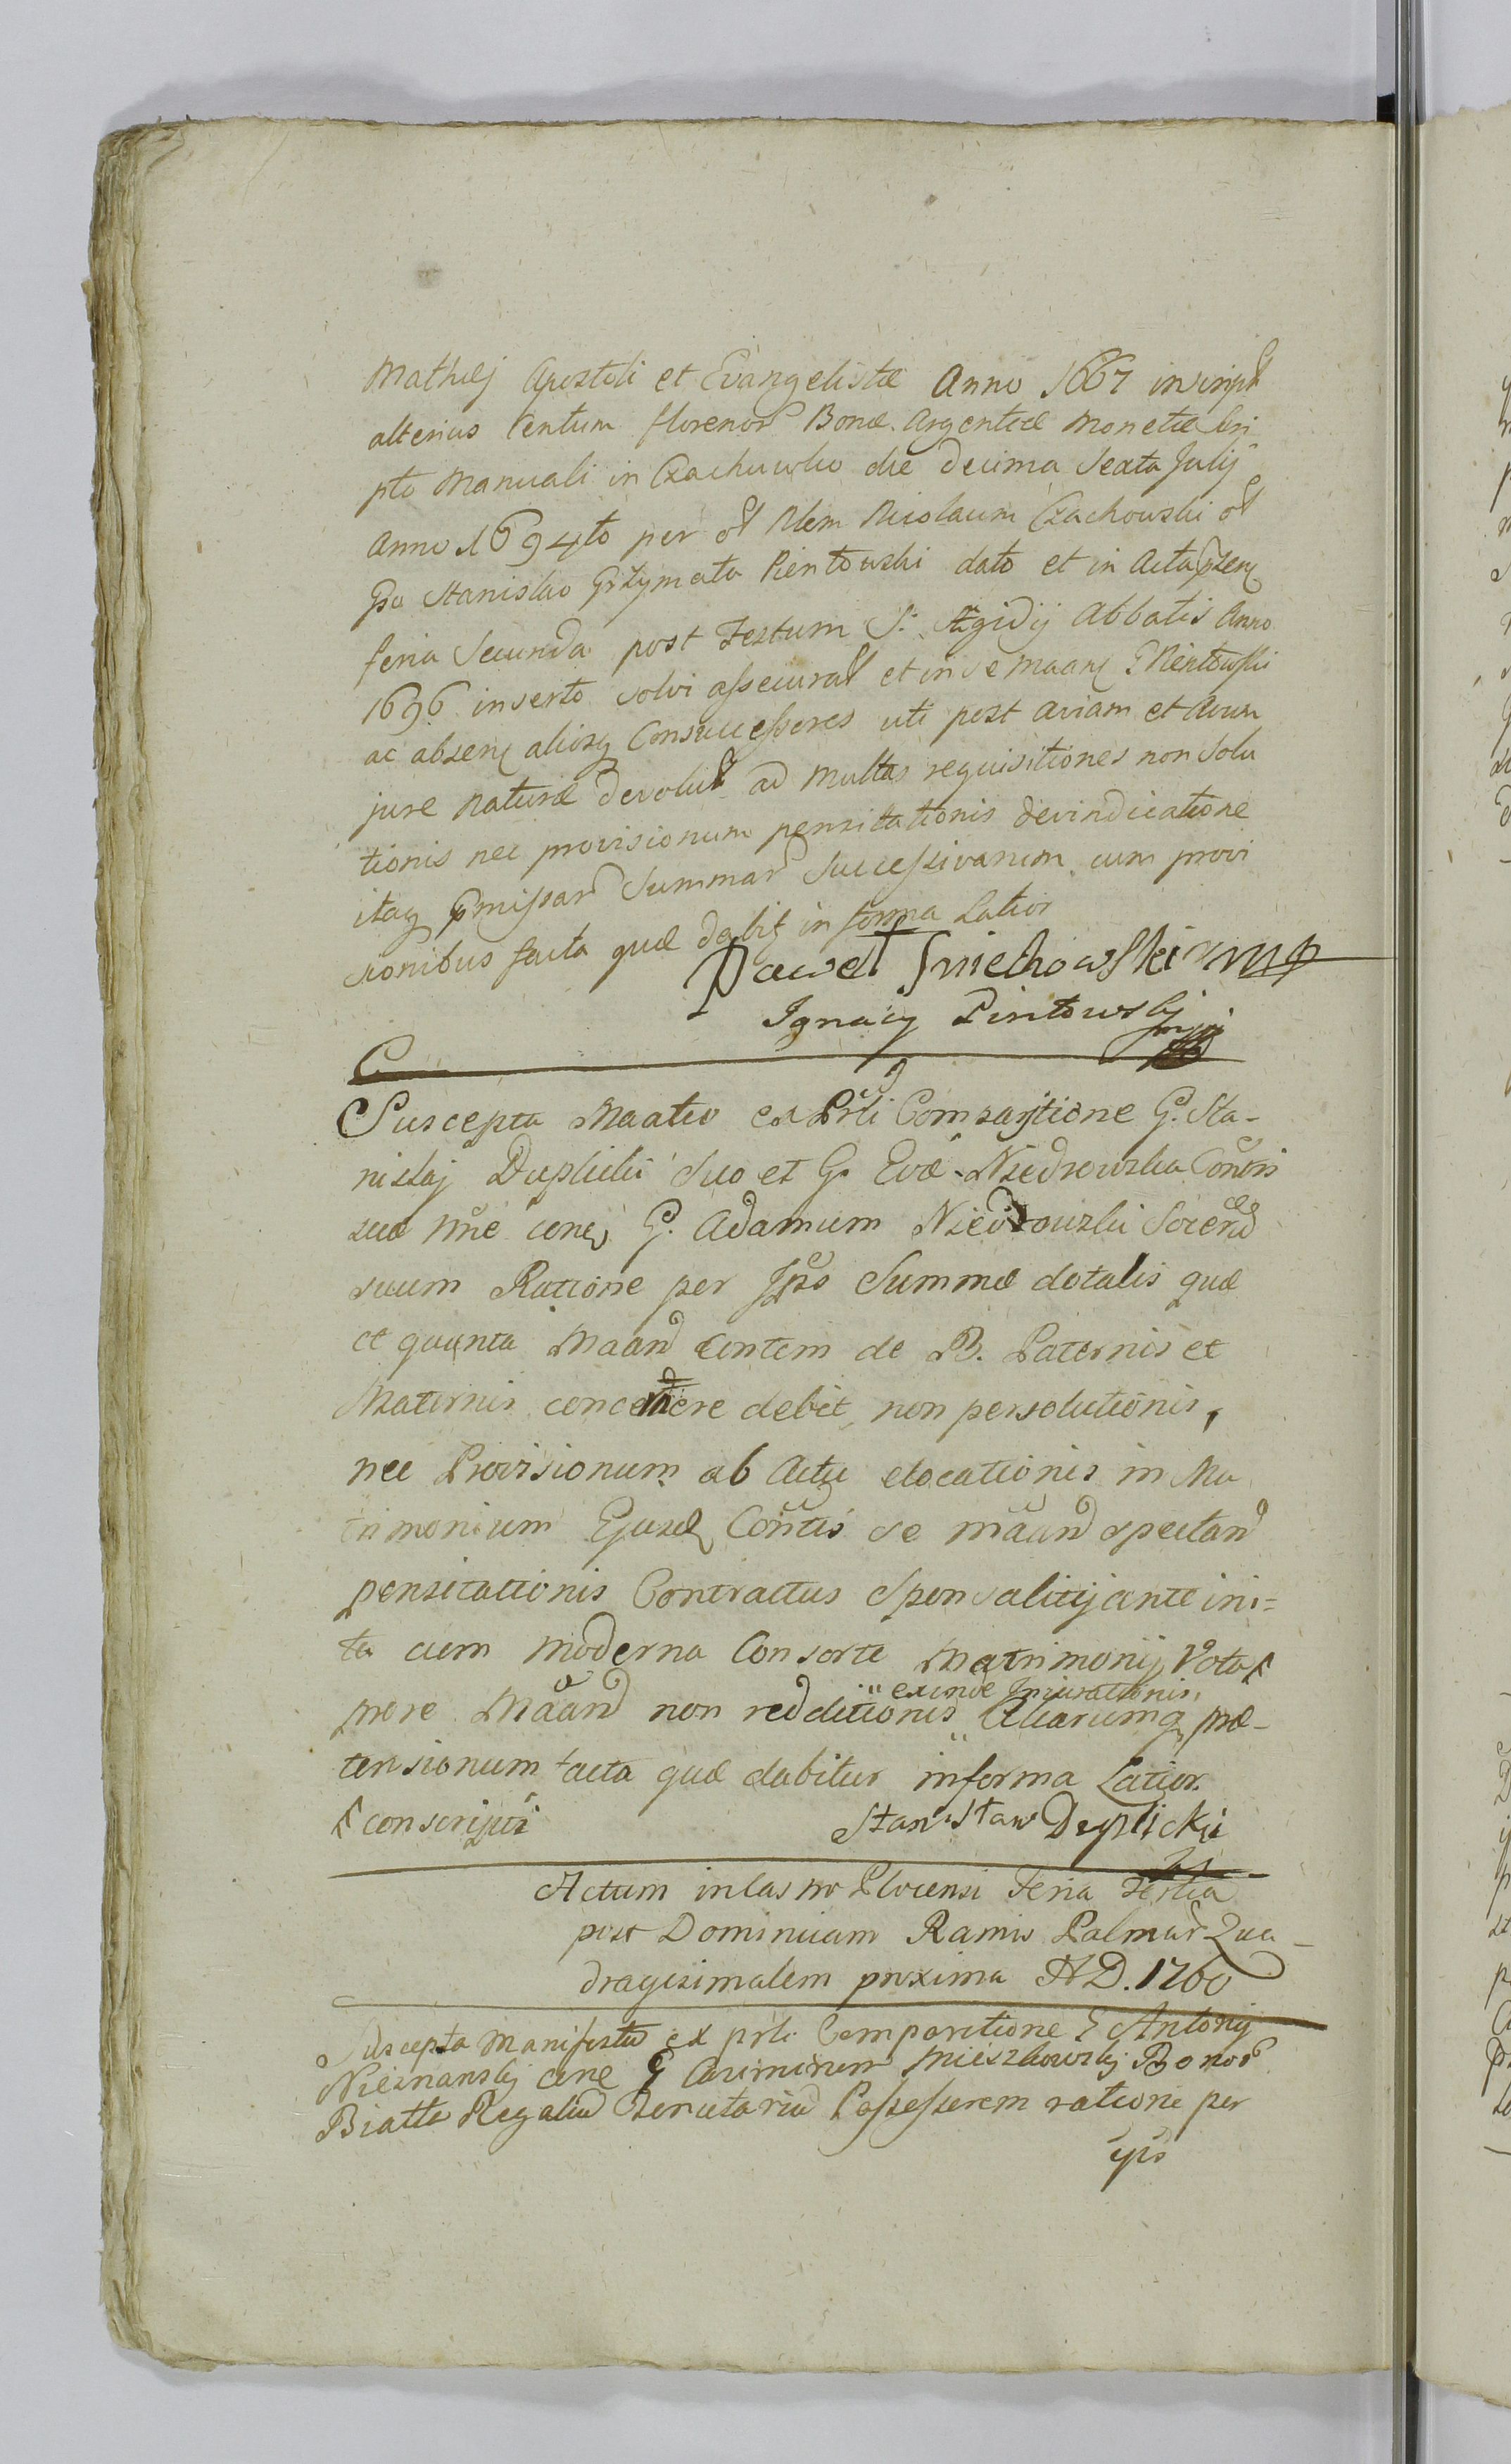 Mathæj Apostoli et Evangelistæ Anno 1667 inscript
alterius Centum florenor Bonæ Argenteæ Monetæ Scri
pto Manuali in Czachowko die decima Sexta Julij
Anno 1694to per ol Nlem Nicolaum Czachowski ol
Gso Stanislao Grzymala Pientowski dato et in Acta præsen
feria Secunda post Festum S. Ægidij Abbatis Anno
1696 inserto solvi assecurat et in se Maanq G Pientowski
ac absenq aliosq Consuccessores uti post aviam et Avum
jure naturæ devolut ad multas requisitiones non solu
tionis nec provisionum pensitationis devindicatione
itaq præmissar Summar Successivarum cum provi
sionibus facta quæ dabit in forma Latior
Paweł Smiechowski mp
Ignacy Pintowskj
mp
Suscepta Maatio ex Prli Comparitione G. Sta-
nislaj Duplicki Suo et G. Evæ Niedrowska Contis
suæ Nne conq G. Adamum Niedrowski Socerum
suum Ratione per Ipso Summæ dotalis quæ
et quanta Maand Contem de B. Paternis et
Maternis concernere debet, non persolutionis,
nec Provisionum ab Actu elocationis in Ma
trimonium Ejusd Contis se maand spectand
pensitationis Contractus Sponsalitij ante ini-
ta cum moderna Consorte Matrimonij Vota
exinde Iniurationis,
pore Maand non redditionis Aliarumq præ-
tensionum facta quæ dabitur in forma Latior.
conscripti Stanisław Duplicki
Actum in Castro Plocensi Feria Tertia
post Dominicam Ramis Palmar Qua-
dragesimalem proxima A D. 1760
Suscepta Manifestatio ex prli Comparitione G Antonij
Nieznanskj cone G Casimirum Mieszkowskj Bonor
Białłe Regaliu Possessorem ratione per
ips